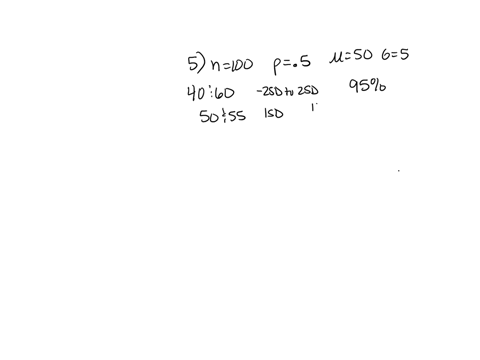 5) n=100 p=.5 μ=50 σ=5
40 & 60 -2SD to 2SD 95%
50 & 55 1SD